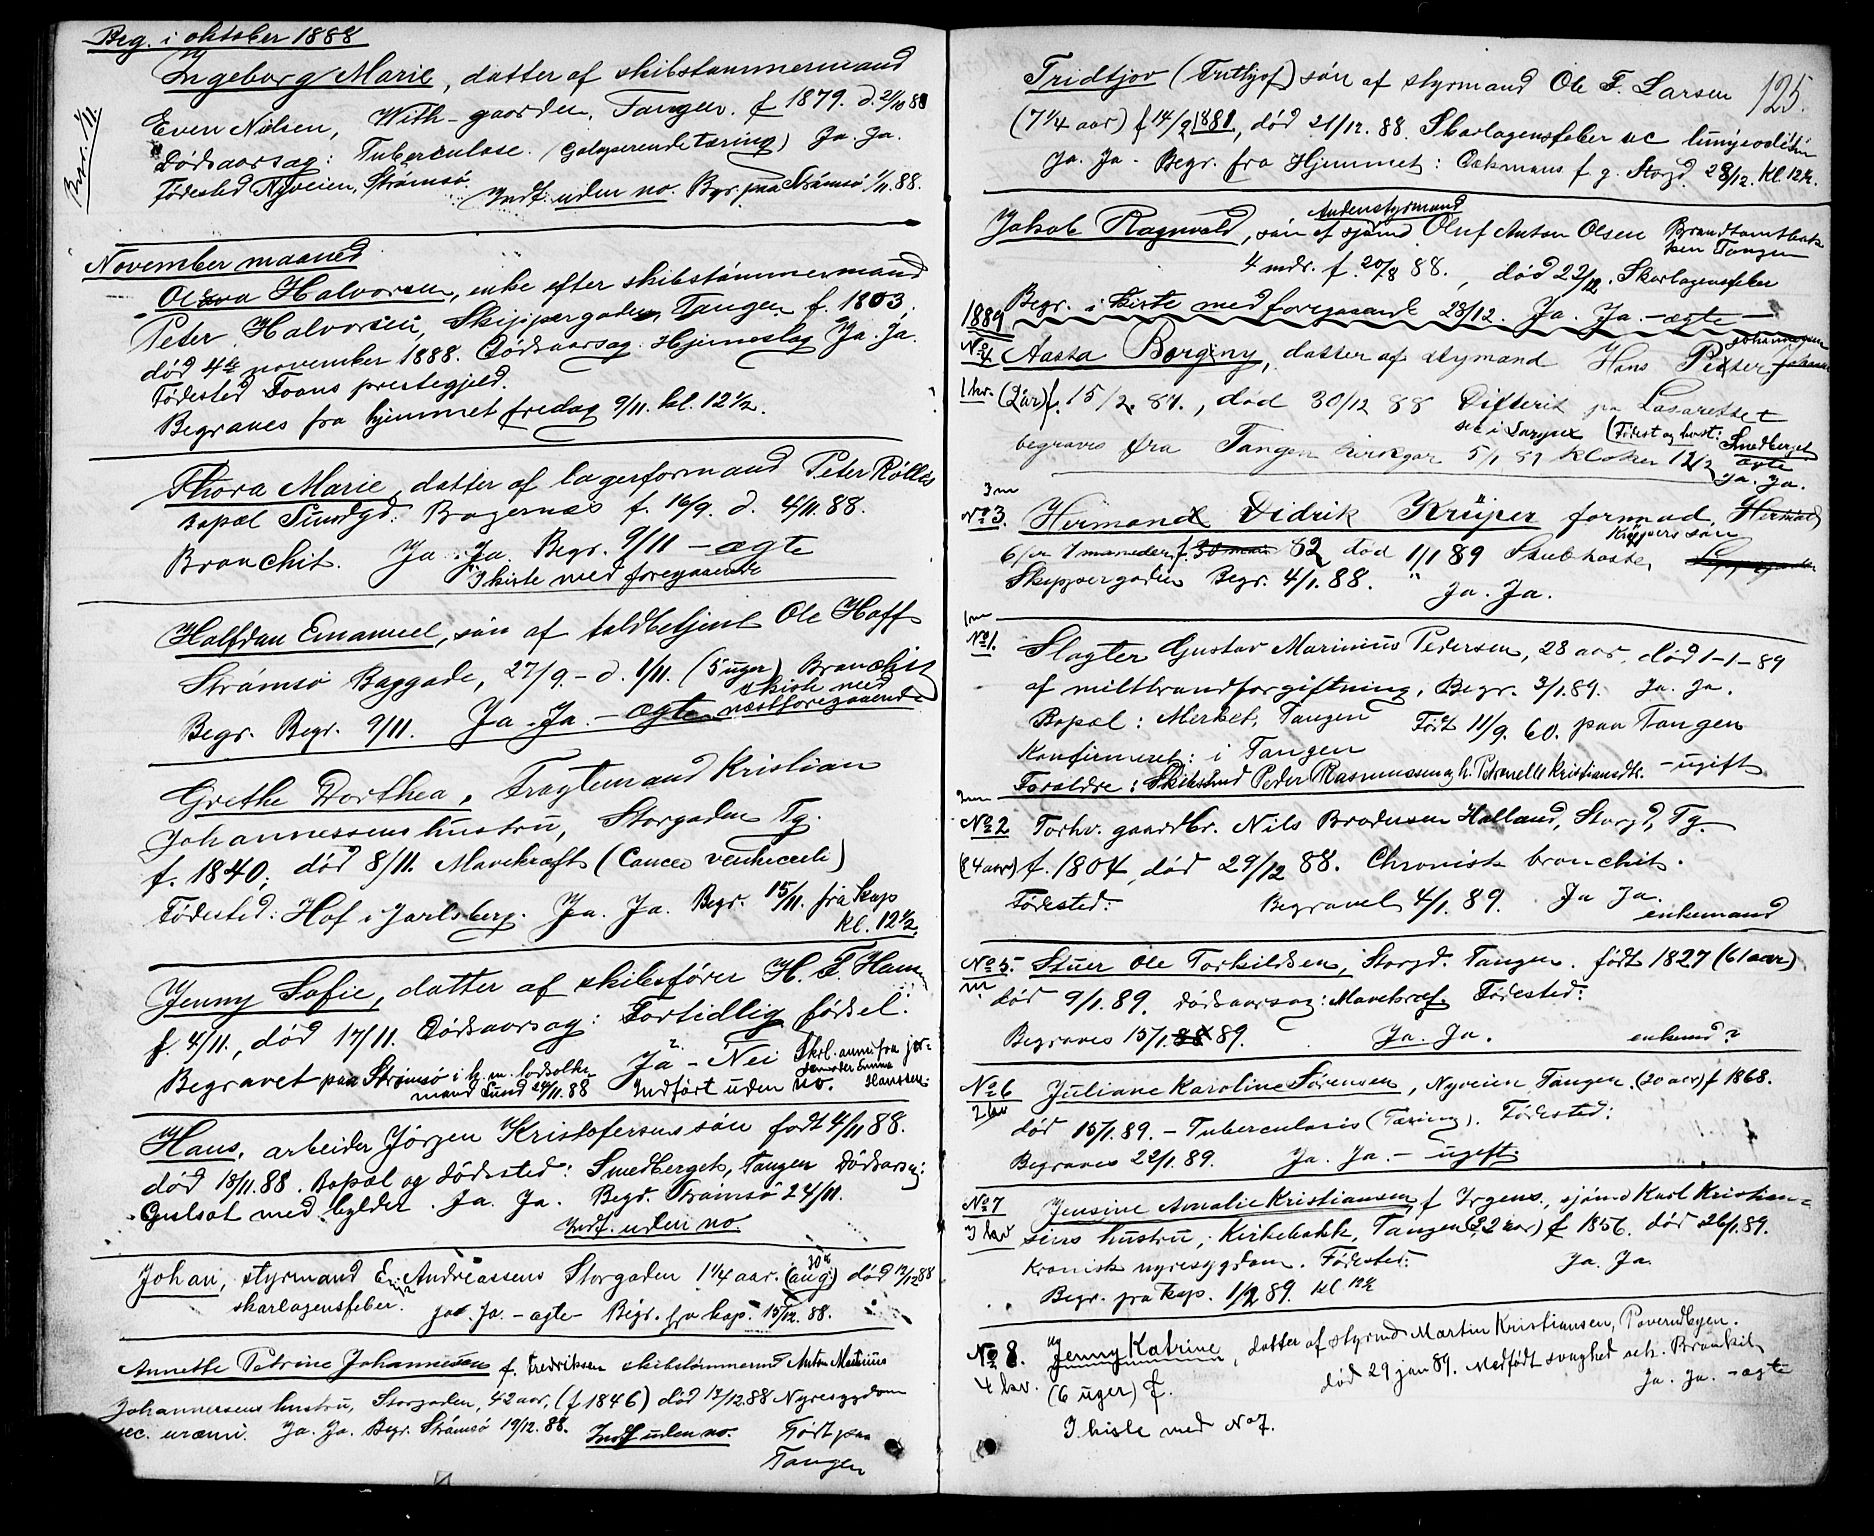 Beg. i oktober 1888
Begr. 1/11.
Ingeborg Marie, datter af skibstømmermand
Even Nielsen, With-gaarden, Tangen. f 1879. d. 2/10 88
Dødsaarsag: Tuberculose. (galoperende tæring) Ja. Ja.
Fødested Nyveien, Strømsø. Indf. uden no. Begr. paa Strømsø 1/11. 88.
November maaned
Halvorsen, enke efter skibstømmermand
Peter Halvorsen, Skippergaden, Tangen f. 1803.
død 4de november 1888. Dødsaarsag. Hjerneslag Ja. Ja.
Fødested prestegjeld.
Begraves fra hjemmet fredag 9/11. kl. 12½.
Thora Marie, datter af lagerformand Peter
Bopæl Sundgd. Bragernæs f. 16/9. d. 4/11. 88.
Bronchit. Ja. Ja. Begr. 9/11 - ægte
I kiste med foregaaende
Halfdan Emanuel, søn af toldbetjent Ole Hoff
Strømsø Baggade, 27/9. - d. 1/11. (5 uger) Bronchit
I kiste med
Begr. Begr. 9/11. Ja. Ja. - ægte næstforegaaende
Grethe Dorthea, Fragtemand Kristian
Johannessens hustru, Storgaden Tg.
f. 1840, død 8/11. Mavekræft (Cancer ventriculi)
Fødested: Hof i Jarlsberg. Ja. Ja. Begr. 15/11. fra kap
kl. 12½.
Jenny Sofie, datter af skibsfører H. F.
f. 4/11., død 17/11. Dødsaarsag: Fortidlig fødsel.
Ja - Nei Skrl. anm. fra jor-
demoder Emma
Begravet paa Strømsø i k. m.
mand Lund 24/11. 88 Indført uden no. Hanssen
Hans, arbeider Jørgen Kristofersens søn født 4/11 88.
død 18/11. 88. Bopæl og dødssted: Smedberget, Tangen Dødsaarsag:
Gulsot med bylder. Ja. Ja. Begr. Strømsø 24/11.
Indf. uden no.
30te
Johan, styrmand E. Andreassens Storgaden 1¼ aar. (aug.) død 12/12 88
skarlagensfeber. Ja. Ja. - ægte - Begr. fra kap. 15/12. 88.
Annette Petrine Johannesen f. Fredriksen skibstømmermd Anton Martinius
Johannessens hustru, Storgaden, 42 aar, (f 1846) død 13/12. 88 Nyresygdom
sec. uræmi. Ja. Ja. Begr. Strømsø 19/12. 88. Indf uden no. Født paa
Tangen
125.
Fridtjov (Frithjof) søn af styrmand Ole F. Larsen
(7¼ aar) f 14/9 1881, død 21/12. 88. Skarlagensfeber
Ja. Ja - Begr. fra Hjemmet: f. g. Storgd. 28/12. kl. 12½.
Andenstyrmand
Jakob Ragnvald, søn af sjømd Oluf Anton Olsen Brandtomtbak
ken Tangen
4 mdr. f. 20/8 88., død 22/12. Skarlagensfeber
Begr. i kiste med foregaaende 28/12. Ja. Ja. - ægte -
1889
No 4 Aasta Borginy, datter af styrmand Hans Petter
1 kv. (2 aar) f. 15/2. 87., død 30/12 88 Difterit paa Lasarettet
sec i Larynx (Fødest og bost: Smedberget
begraves fra Tangen kirkegar 5/1 89 klokken 12½ ægte
Ja. Ja.
3 m
No 3. Hermand Didrik Krüger formad.
søn
6 år 7 maaneder f. 82 død 1/1 89 Strubhoste,
Skippergaden Begr. 4/1. 88. Ja. Ja.
1 m
No 1. Slagter Gustav Marinius Pedersen, 28 aar, død 1-1-89
af miltbrandforgiftning, Begr. 3/1. 89. Ja. Ja.
Bopæl: Merket, Tangen Født 11/9. 60. paa Tangen
Konfirmeret: i Tangen
Forældre: Peder Rasmussen og h. Petronelle Kristiansdtr. - ugift
2 m
No 2 Forhv. gaardbr. Nils Brodersen Holland, Storgd, Tg.
(84 aar) f. 1804, død 29/12 88. Chronisk bronchit.
Fødested: Begravet 4/1. 89. Ja Ja.
enkemand
No 5. Stuer Ole Torkildsen, Storgd. Tangen. født 1827 (61 aar)
m død 9/1. 89. Dødsaarsag: Mavekræf. Fødested:
Begraves 15/1. 89. Ja. Ja. enkemd?
No 6 Juliane Karoline Sørensen, Nyveien Tangen. (20 aar) f 1868.
2 kv død 15/1. 89. - Tuberculosis (Tæring). Fødested:
Begraves 22/1. 89. Ja. Ja. - ugift.
No 7 Jensine Amalie Kristiansen f Irgens, sjømd Karl Kristian-
3 kv sens hustru, Kirkebakk, Tangen (32 aar) f 1856. død 26/1. 89.
Kronisk nyresygdom. Fødested: Ja. Ja.
Begr. fra kap. 1/2 89. kl 12½
No 8. Jenny Katrine, datter af styrmd Martin Kristiansen,
4 kv. (6 uger) f. død 29 jan 89. Medfødt svaghed Bronkit
Ja. Ja. - ægte
I kiste med No 7.